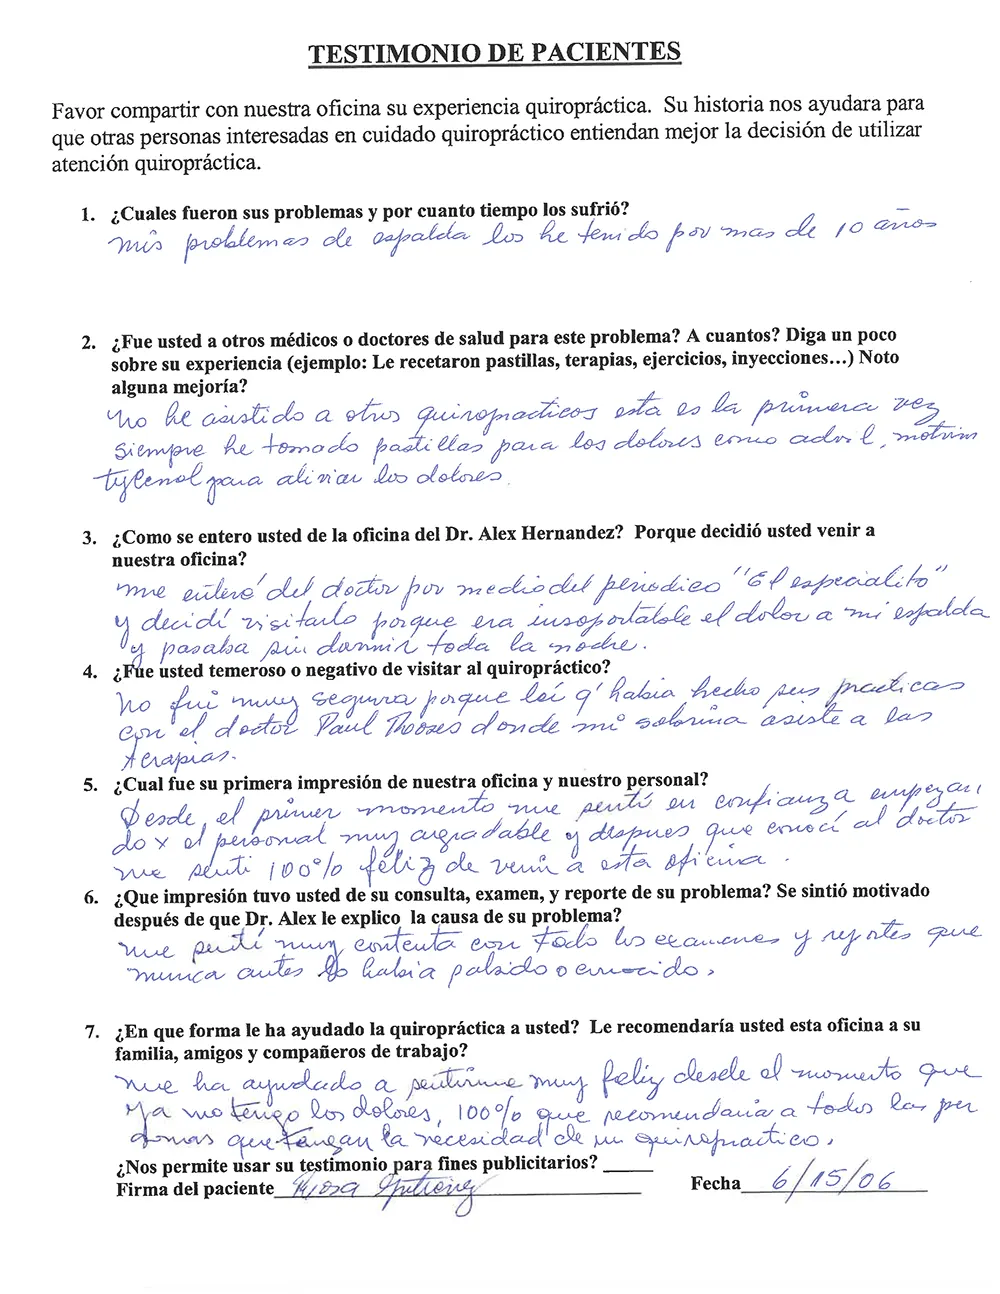 TESTIMONIO DE PACIENTES
Favor compartir con nuestra oficina su experiencia quiropráctica. Su historia nos ayudara para
que otras personas interesadas en cuidado quiropráctico entiendan mejor la decisión de utilizar
atención quiropráctica.
1. ¿Cuales fueron sus problemas y por cuanto tiempo los sufrió?
mis problemas de espalda los he tenido por mas de 10 años
2. ¿Fue usted a otros médicos o doctores de salud para este problema? A cuantos? Diga un poco
sobre su experiencia (ejemplo: Le recetaron pastillas, terapias, ejercicios, inyecciones...) Noto
alguna mejoría?
no he asistido a otros quiropracticos esta es la primera vez
siempre he tomado pastillas para los dolores como advil, motrin
tylenol para aliviar los dolores.
3. ¿Como se entero usted de la oficina del Dr. Alex Hernandez? Porque decidió usted venir a
nuestra oficina?
me enteré del doctor por medio del periodico "El especialito"
y decidí visitarlo porque era insoportable el dolor a mi espalda
y pasaba sin dormir toda la noche.
4. ¿Fue usted temeroso o negativo de visitar al quiropráctico?
no fui muy segura porque leí q' habia hecho sus practicas
con el doctor Paul donde mi sobrina asiste a las
terapias.
5. ¿Cual fue su primera impresión de nuestra oficina y nuestro personal?
Desde el primer momento me sentí en confianza empezan
do x el personal muy agradable y despues que conocí al doctor
me senti 100% féliz de venir a esta oficina.
6. ¿Que impresión tuvo usted de su consulta, examen, y reporte de su problema? Se sintió motivado
después de que Dr. Alex le explico la causa de su problema?
me sentí muy contenta con todo los examenes y reportes que
munca antes lo habia o conocido.
7. ¿En que forma le ha ayudado la quiropráctica a usted? Le recomendaría usted esta oficina a su
familia, amigos y compañeros de trabajo?
me ha ayudado a sentirme muy feliz desde el momento que
ya no tengo los dolores, 100% que recomendaria a todos las per
que tengan la necesidad de un quiropractico.
¿Nos permite usar su testimonio para fines publicitarios? _____
Firma del paciente Rosa Gutierrez Fecha 6/15/06